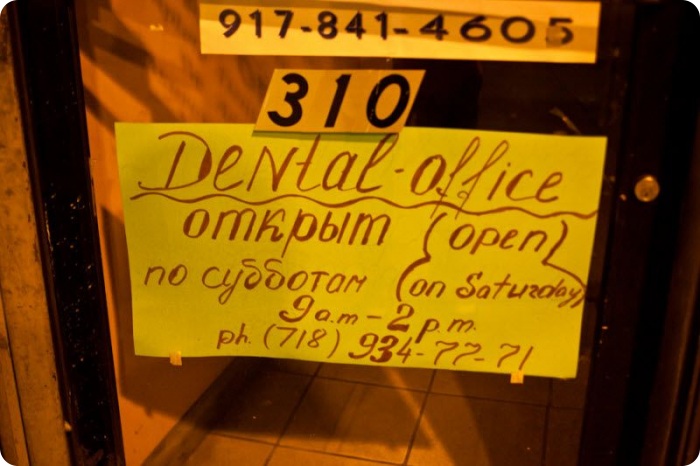 917-841-4605
310
Dental-office
открыт (open)
по субботам (on Saturday)
9 a.m - 2 p.m.
ph. (718) 934-77-71